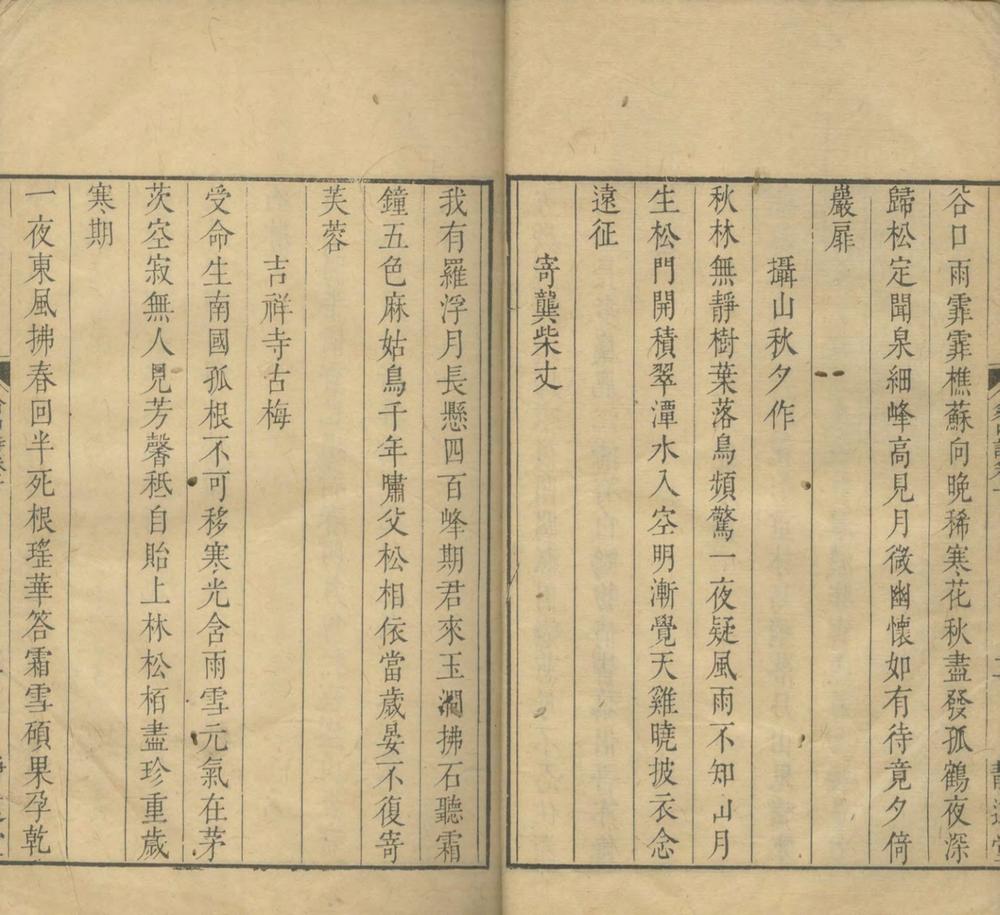 谷口雨霏霏樵蘇向晚稀寒花秋盡發孤鶴夜深
歸松定聞泉細峰高見月微幽懷如有待竟夕倚
巖扉
攝山秋夕作
秋林無靜樹葉落鳥頻驚一夜疑風雨不知山月
生松門開積翠潭水入空明漸覺天雞曉披衣念
遠征
寄龔柴丈
我有羅浮月長懸四百峰期君來玉澗拂石聽霜
鐘五色麻姑鳥千年嘯父松相依當歲晏不復寄
芙蓉
吉祥寺古梅
受命生南國孤根不可移寒光含雨雪元氣在茅
茨空寂無人見芳馨秪自貽上林松栢盡珍重歲
寒期
一夜東風拂春回半死根瑤華答霜雪碩果孕乾